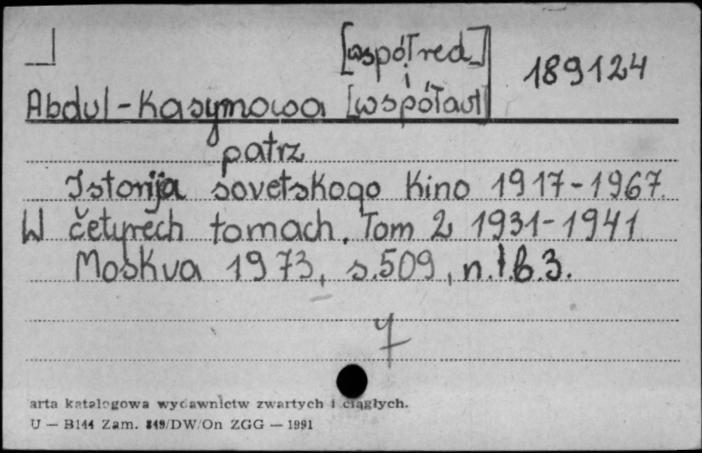 [współred.]
i
189124
Abdul-Kasymowa [współaut]
patrz
Istorija sovetskogo kino 1917-1967.
W četyrech tomach. Tom 2 1931-1941.
Moskva 1973, s.509, n.l.b.3.
arta katalogowa wydawnictw zwartych i ciągłych.
U — B144 Zam. 849/DW/On ZGG — 1991